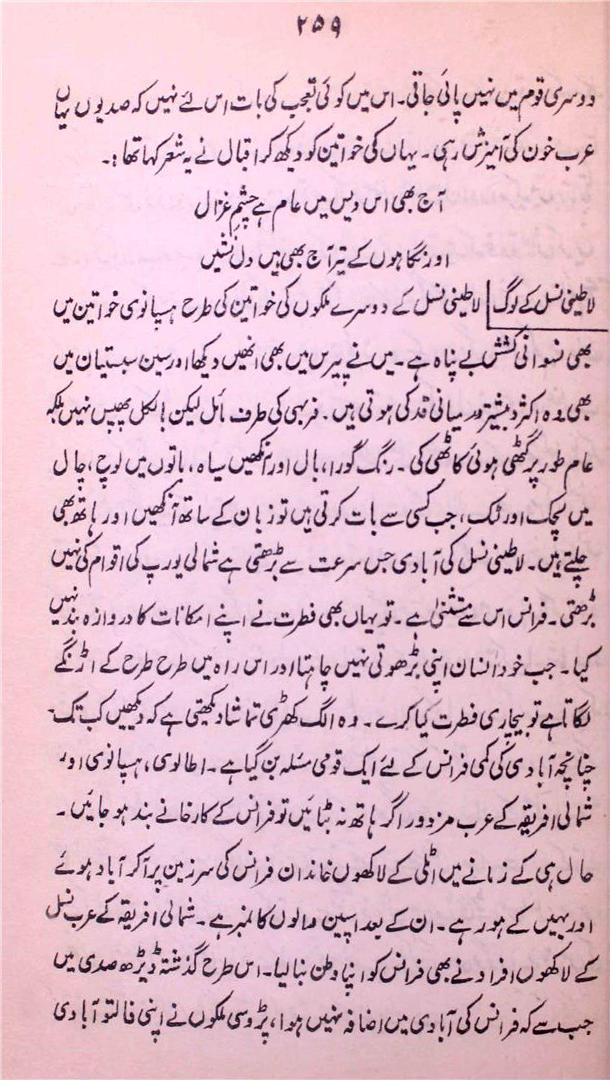 ۲۵۹
دوسری قوم میں نہیں پائی جاتی۔ اس میں کوئی تعجب کی بات اس لئے نہیں کہ صدیوں یہاں
عرب خون کی آمیزش رہی۔ یہاں کی خواتین کو دیکھ کر اقبال نے یہ شعر کہا تھا:۔
آج بھی اس دیس میں عام ہے چشمِ غزال
اور نگاہوں کے تیر آج بھی ہیں دل نشیں
لاطینی نسل کے لوگ لاطینی نسل کے دوسرے ملکوں کی خواتین کی طرح ہسپانوی خواتین میں
بھی نسوانی کشش بے پناہ ہے۔ میں نے پیرس میں بھی انھیں دیکھا اور سین سبستیان میں
بھی۔ وہ اکثر و بیشتر درمیانی قد کی ہوتی ہیں۔ فربہی کی طرف مائل لیکن بالکل پھپس نہیں بلکہ
عام طور پر گٹھی ہوئی کاٹھی کی۔ رنگ گورا، بال اور آنکھیں سیاہ، باتوں میں لوچ، چال
میں لچک اور ٹمک، جب کسی سے بات کرتی ہیں تو زبان کے ساتھ آنکھیں اور ہاتھ بھی
چلتے ہیں۔ لاطینی نسل کی آبادی جس سرعت سے بڑھتی ہے شمالی یورپ کی اقوام کی نہیں
بڑھتی۔ فرانس اس سے مستثنیٰ ہے۔ تو یہاں بھی فطرت نے اپنے امکانات کا دروازہ بند نہیں
کیا۔ جب خود انسان اپنی بڑھوتی نہیں چاہتا اور اس راہ میں طرح طرح کے اڑنگے
لگاتا ہے تو بیچاری فطرت کیا کرے۔ وہ الگ کھڑی تماشا دیکھتی ہے کہ دیکھیں کب تک۔
چنانچہ آبادی کی کمی فرانس کے لئے ایک قومی مسئلہ بن گیا ہے۔ اطالوی، ہسپانوی اور
شمالی افریقہ کے عرب مزدور اگر ہاتھ نہ بٹائیں تو فرانس کے کارخانے بند ہو جائیں۔
حال ہی کے زمانے میں اٹلی کے لاکھوں خاندان فرانس کی سرزمین پر آکر آباد ہوئے
اور یہیں کے ہو رہے۔ ان کے بعد اسپین والوں کا نمبر ہے۔ شمالی افریقہ کے عرب نسل
کے لاکھوں افراد نے بھی فرانس کو اپنا وطن بنا لیا۔ اس طرح گذشتہ ڈیڑھ صدی میں
جب سے کہ فرانس کی آبادی میں اضافہ نہیں ہوا، پڑوسی ملکوں نے اپنی فالتو آبادی